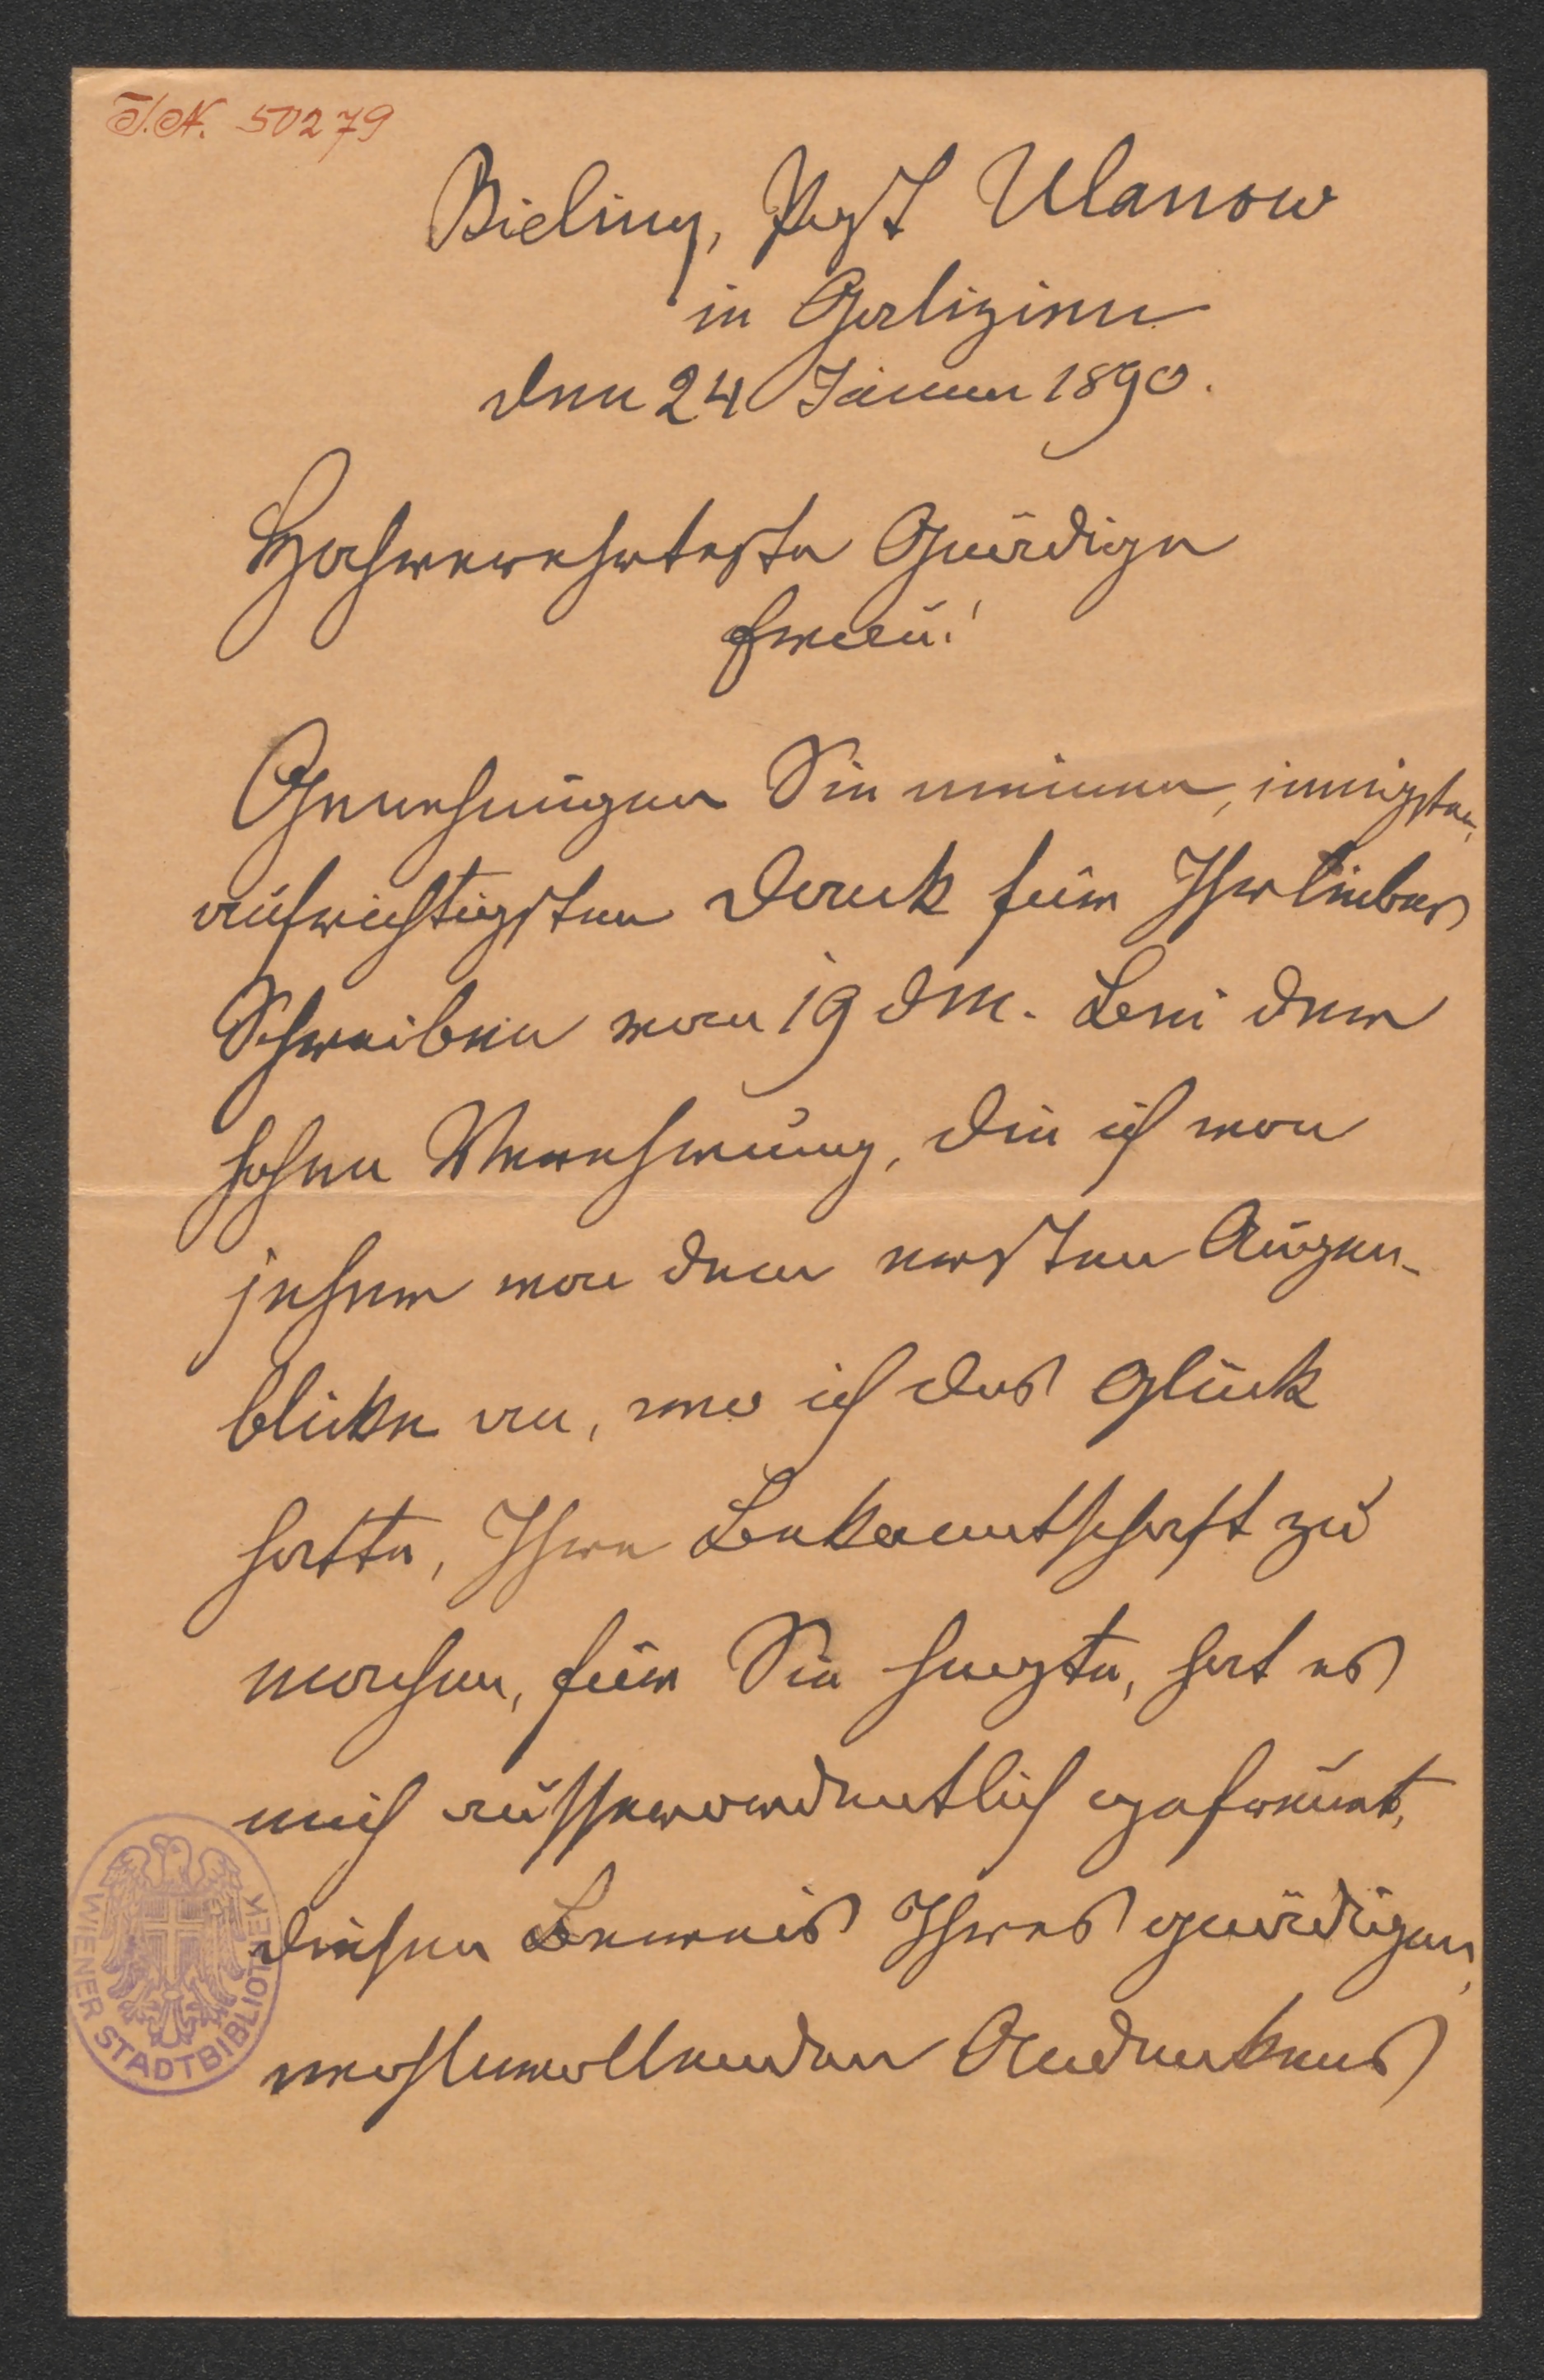 I.N. 50279
Bieliny, Post Ulanow
in Galizien
den 24 Jänner 1890.
Hochverehrteste Gnädige
Frau!
Genehmigen Sie meinen, innigsten,
aufrichtigsten Dank für Ihr liebes
Schreiben von 19 dM. Bei der
hohen Verehrung, die ich von
jeher von dem ersten Augen-
blicke an, wo ich das Glück
hatte, Ihre Bekanntschaft zu
machen, für Sie hegte, hat es
mich ausserordentlich gefreut,
diesen Beweis Ihres gnädigen,
wohlwollenden Andenkens
WIENER STADTBIBLIOTHEK